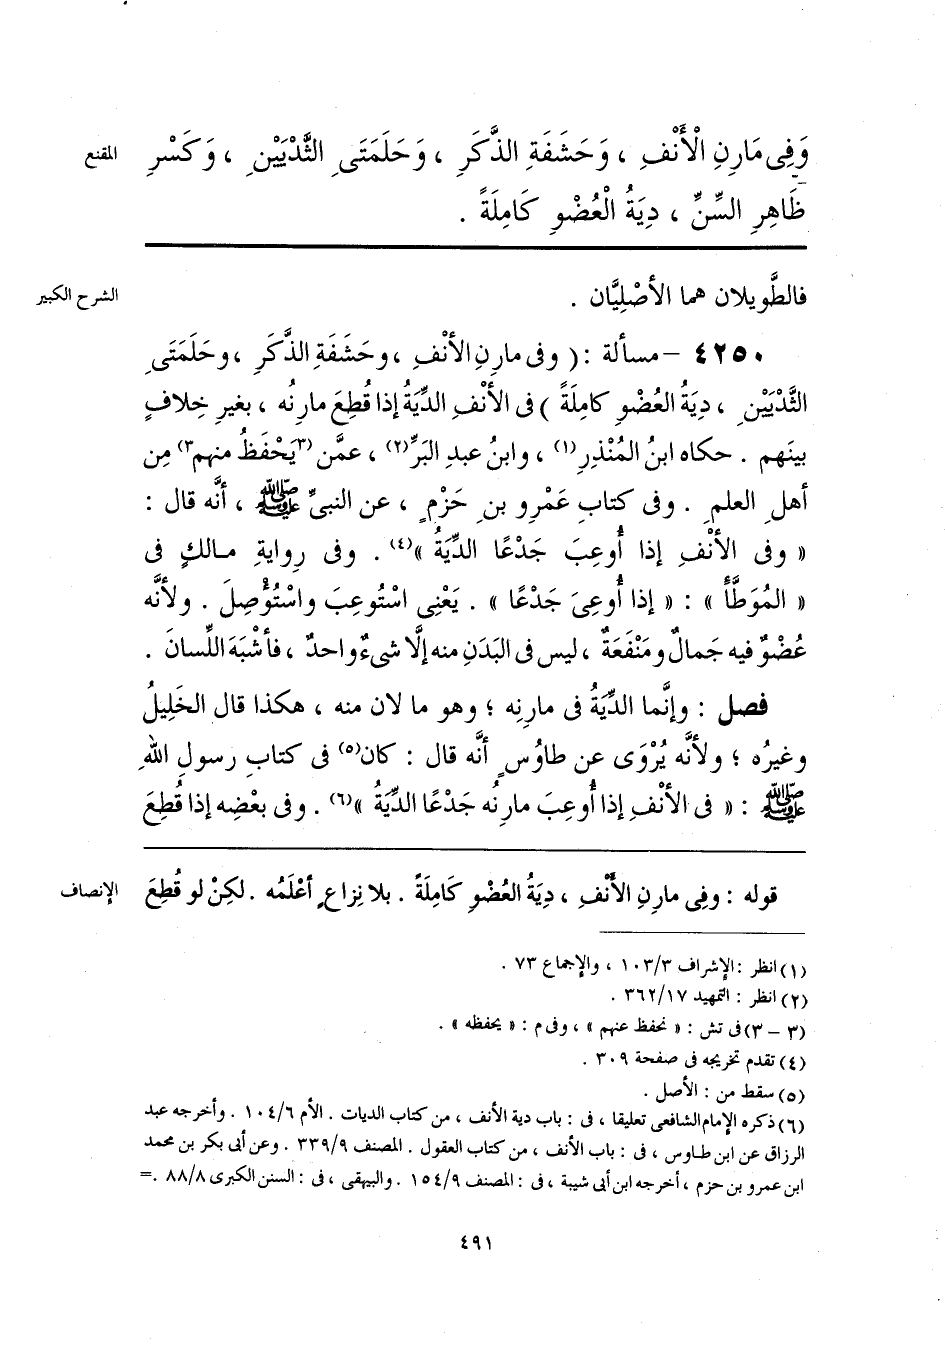 المقنع
وَفِى مَارِنِ الْأَنْفِ ، وَحَشَفَةِ الذَّكَرِ ، وَحَلَمَتَىِ الثَّدْيَيْنِ ، وَكَسْرِ
ظَاهِرِ السِّنِّ ، دِيَةُ الْعُضْوِ كَامِلَةً .
الشرح الكبير
فالطَّويلان هما الأصْلِيَّان .
٤٢٥٠ – مسألة : ( وفى مارِنِ الأنْفِ ، وحَشَفَةِ الذَّكَرِ ، وحَلَمَتَىِ
الثَّدْيَيْنِ ، دِيَةُ العُضْوِ كامِلَةً ) فى الأنْفِ الدِّيَةُ إذا قُطِعَ مارنُه ، بغيرِ خِلافٍ
بينَهم . حكاه ابنُ المُنْذِرِ(١) ، وابنُ عبدِ البَرِّ(٢) ، عمَّن (٣يَحْفَظُ منهم٣) مِن
أهلِ العلمِ . وفى كتابِ عَمْرِو بنِ حَزْمٍ ، عن النبىِّ ﷺ ، أنَّه قال :
« وفى الأنْفِ إذا أُوعِبَ جَدْعًا الدِّيَةُ »(٤) . وفى رِوايةِ مـالكٍ فى
« المُوَطَّأ » : « إذا أُوعِىَ جَدْعًا » . يَعْنِى اسْتُوعِبَ واسْتُؤْصِلَ . ولأنَّه
عُضْوٌ فيه جَمالٌ ومَنْفَعَةٌ ، ليس فى البَدَنِ منه إلَّا شىءٌ واحدٌ ، فأشْبَهَ اللِّسانَ .
فصل : وإنَّما الدِّيَةُ فى مارِنِه ؛ وهو ما لان منه ، هكذا قال الخَلِيلُ
وغيرُه ؛ ولأنَّه يُرْوَى عن طاوُسٍ أنَّه قال : كان(٥) فى كتابِ رسولِ اللهِ
ﷺ : « فى الأنْفِ إذا أُوعِبَ مارنُه جَدْعًا الدِّيَةُ »(٦) . وفى بعْضِه إذا قُطِعَ
الإنصاف
قوله : وفِى مارِنِ الأَنْفِ ، دِيَةُ العُضْوِ كَامِلَةً . بلا نِزاعٍ أعْلَمُه . لكِنْ لو قُطِعَ
(١) انظر : الإشراف ١٠٣/٣ ، والإجماع ٧٣ .
(٢) انظر : التمهيد ٣٦٢/١٧ .
(٣ – ٣) فى تش : « نحفظ عنهم » ، وفى م : « يحفظه » .
(٤) تقدم تخريجه فى صفحة ٣٠٩ .
(٥) سقط من : الأصل .
(٦) ذكره الإمام الشافعى تعليقا ، فى : باب دية الأنف ، من كتاب الديات . الأم ١٠٤/٦ . وأخرجه عبد
الرزاق عن ابن طـاوس ، فى : باب الأنف ، من كتاب العقول . المصنف ٣٣٩/٩ . وعن أبى بكر بن محمد
ابن عمرو بن حزم ، أخرجه ابن أبى شيبة ، فى : المصنف ١٥٤/٩ . والبيهقى ، فى : السنن الكبرى ٨٨/٨ .=
٤٩١